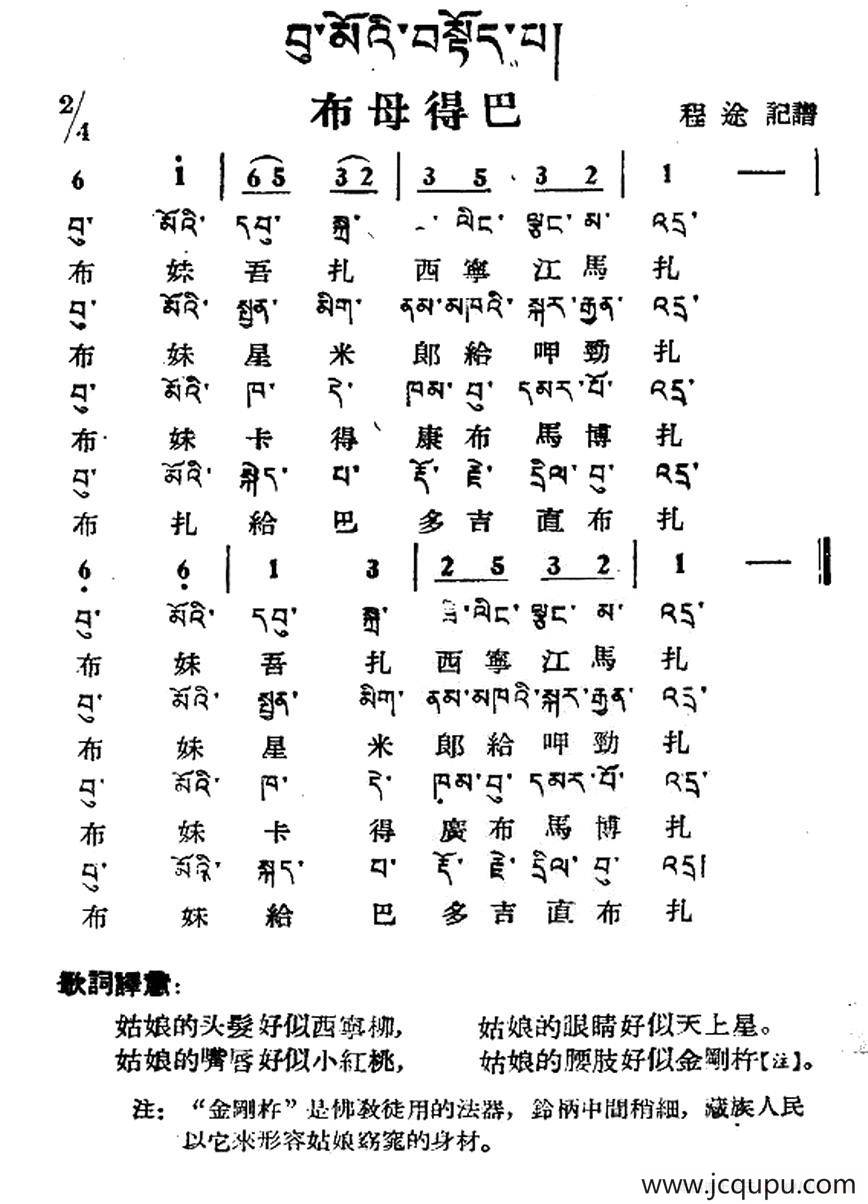 བུ་མོའི་བསྟོད་པ།
2/4
布母得巴
程途 記譜
6 i | 6 5 3 2 | 3 5 3 2 | 1 — |
བུ་ མོའི་ དབུ་ སྐྲ་ ལིང་ ལྕང་ མ་ འདྲ་
布 妹 吾 扎 西 寧 江 馬 扎
བུ་ མོའི་ སྤྱན་ མིག་ ནམ་མཁའི་ སྐར་རྒྱན་ འདྲ་
布 妹 星 米 郎 給 呷 勁 扎
བུ་ མོའི་ ཁ་ དེ་ ཁམ་ བུ་ དམར་པོ་ འདྲ་
布 妹 卡 得 康 布 馬 博 扎
བུ་ མོའི་ སྐེད་ པ་ རྡོ་ རྗེ་ དྲིལ་ བུ་ འདྲ་
布 扎 給 巴 多 吉 直 布 扎
6̣ 6̣ | 1 3 | 2 5 3 2 | 1 — ‖
བུ་ མོའི་ དབུ་ སྐྲ་ ལིང་ ལྕང་ མ་ འདྲ་
布 妹 吾 扎 西 寧 江 馬 扎
བུ་ མོའི་ སྤྱན་ མིག་ ནམ་མཁའི་སྐར་རྒྱན་ འདྲ་
布 妹 星 米 郎 給 呷 勁 扎
བུ་ མོའི་ ཁ་ དེ་ ཁམ་བུ་ དམར་པོ་ འདྲ་
布 妹 卡 得 廣 布 馬 博 扎
བུ་ མོའི་ སྐད་ པ་ རྡོ་ རྗེ་ དྲིལ་ བུ་ འདྲ།
布 妹 給 巴 多 吉 直 布 扎
歌詞譯意：
姑娘的头髮好似西寧柳， 姑娘的眼睛好似天上星。
姑娘的嘴唇好似小紅桃， 姑娘的腰肢好似金剛杵【注】。
注：“金剛杵”是佛敎徒用的法器，鈴柄中間稍細，藏族人民
以它來形容姑娘窈窕的身材。
www.jcqupu.com